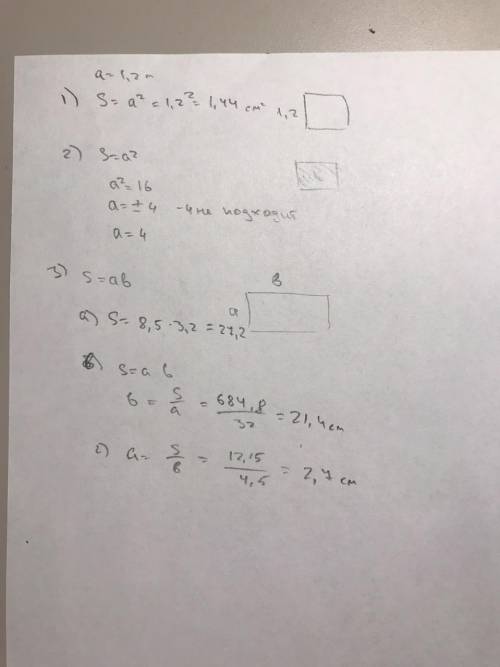 a = 1,2 м
1) S = a² = 1,2² = 1,44 см² 1,2
2) S = a²
a² = 16
a = ± 4 -4 не подходит
a = 4
3) S = ab
в
a
a) S = 8,5 · 3,2 = 27,2
б) S = a b
b = S/a = 684,8/32 = 21,4 см
с) a = S/b = 12,15/4,5 = 2,7 см